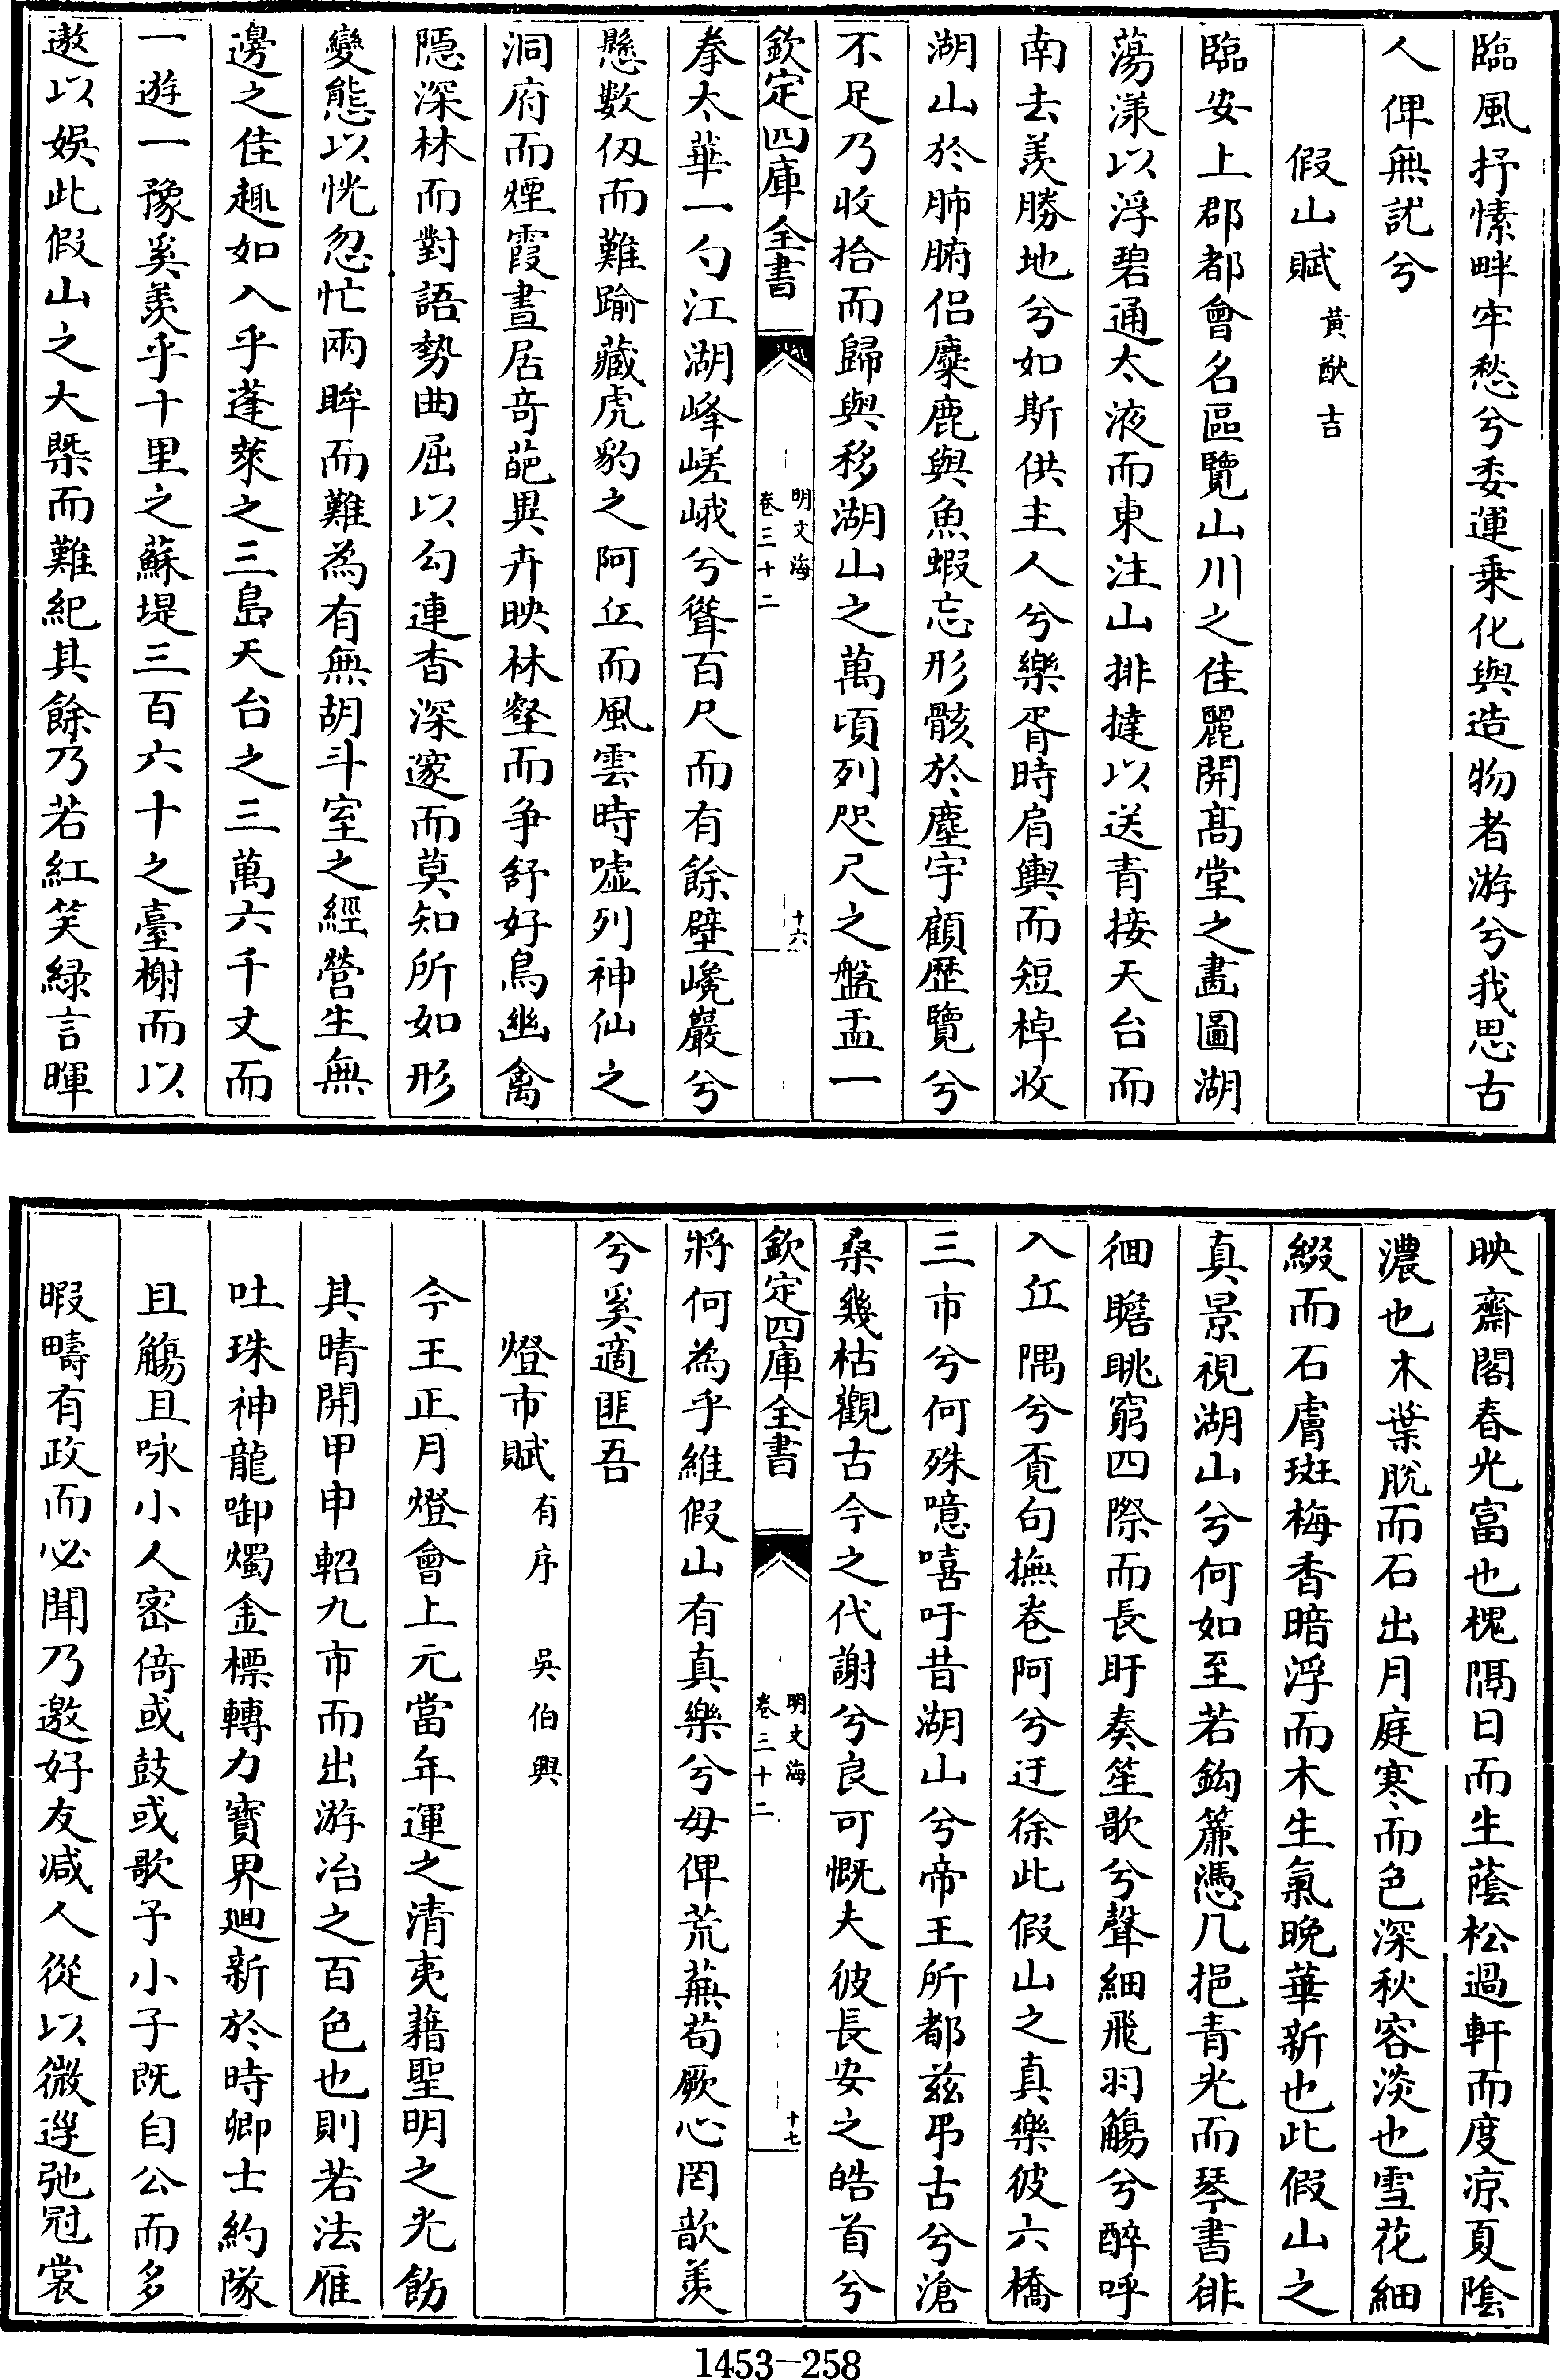 臨風抒愫畔牢愁兮委運乗化與造物者游兮我思古
人俾無訧兮
假山賦 黃猷吉
臨安上郡都會名區覽山川之佳麗開髙堂之畵圖湖
蕩漾以浮碧通太液而東注山排撻以送青接天台而
南去羡勝地兮如斯供主人兮樂胥時肩輿而短棹收
湖山於肺腑侣麋鹿與魚蝦忘形骸於塵宇顧歴覽兮
不足乃收拾而歸與移湖山之萬頃列咫尺之盤盂一
欽定四庫全書
明文海
卷三十二
十六
拳太華一勺江湖峰嵯峨兮聳百尺而有餘壁巉巖兮
懸數仭而難踰藏虎豹之阿丘而風雲時嘘列神仙之
洞府而煙霞晝居竒葩異卉映林壑而争舒好鳥幽禽
隠深林而對語勢曲屈以勾連杳深邃而莫知所如形
變態以恍忽忙兩眸而難為有無胡斗室之經營生無
邊之佳趣如入乎蓬萊之三島天台之三萬六千丈而
一遊一豫奚羡乎十里之蘇堤三百六十之臺榭而以
遨以娯此假山之大槩而難紀其餘乃若紅笑緑言暉
映齋閣春光富也槐隔日而生蔭松過軒而度凉夏陰
濃也木葉脱而石出月庭寒而色深秋容淡也雪花細
綴而石膚斑梅香暗浮而木生氣晚華新也此假山之
真景視湖山兮何如至若鈎簾憑几挹青光而琴書徘
徊瞻眺窮四際而長盱奏笙歌兮聲細飛羽觴兮醉呼
入丘隅兮覔句撫巻阿兮迂徐此假山之真樂彼六橋
三市兮何殊噫嘻吁昔湖山兮帝王所都兹弔古兮滄
桑幾枯觀古今之代謝兮良可慨夫彼長安之皓首兮
欽定四庫全書
明文海
卷三十二
十七
將何為乎維假山有真樂兮毋俾荒蕪苟厥心罔歆羡
兮奚適匪吾
燈市賦 有序 吳伯與
今王正月燈會上元當年運之清夷藉聖明之光飭
其晴開甲申軺九市而出游冶之百色也則若法雁
吐珠神龍啣燭金標轉力寳界廻新於時卿士約隊
且觴且咏小人密倚或鼓或歌予小子既自公而多
暇疇有政而必聞乃邀好友減人從以微逕弛冠裳
1453—258